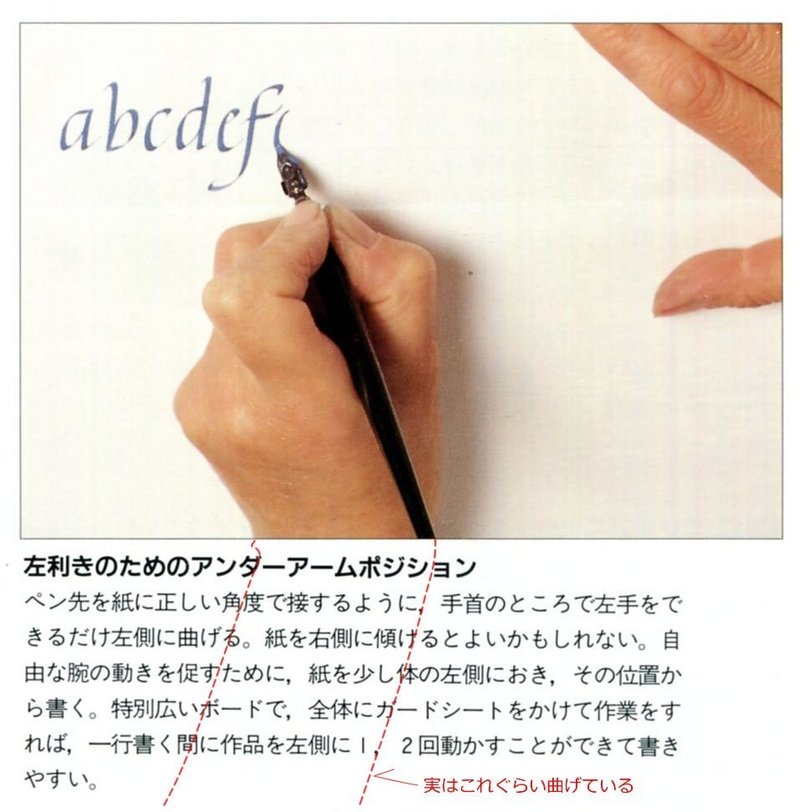 abcdef
左利きのためのアンダーアームポジション
ペン先を紙に正しい角度で接するように，手首のところで左手をで
きるだけ左側に曲げる。紙を右側に傾けるとよいかもしれない。自
由な腕の動きを促すために，紙を少し体の左側におき，その位置か
ら書く。特別広いボードで，全体にガードシートをかけて作業をす
れば，一行書く間に作品を左側に1，2回動かすことができて書き
やすい。
実はこれぐらい曲げている